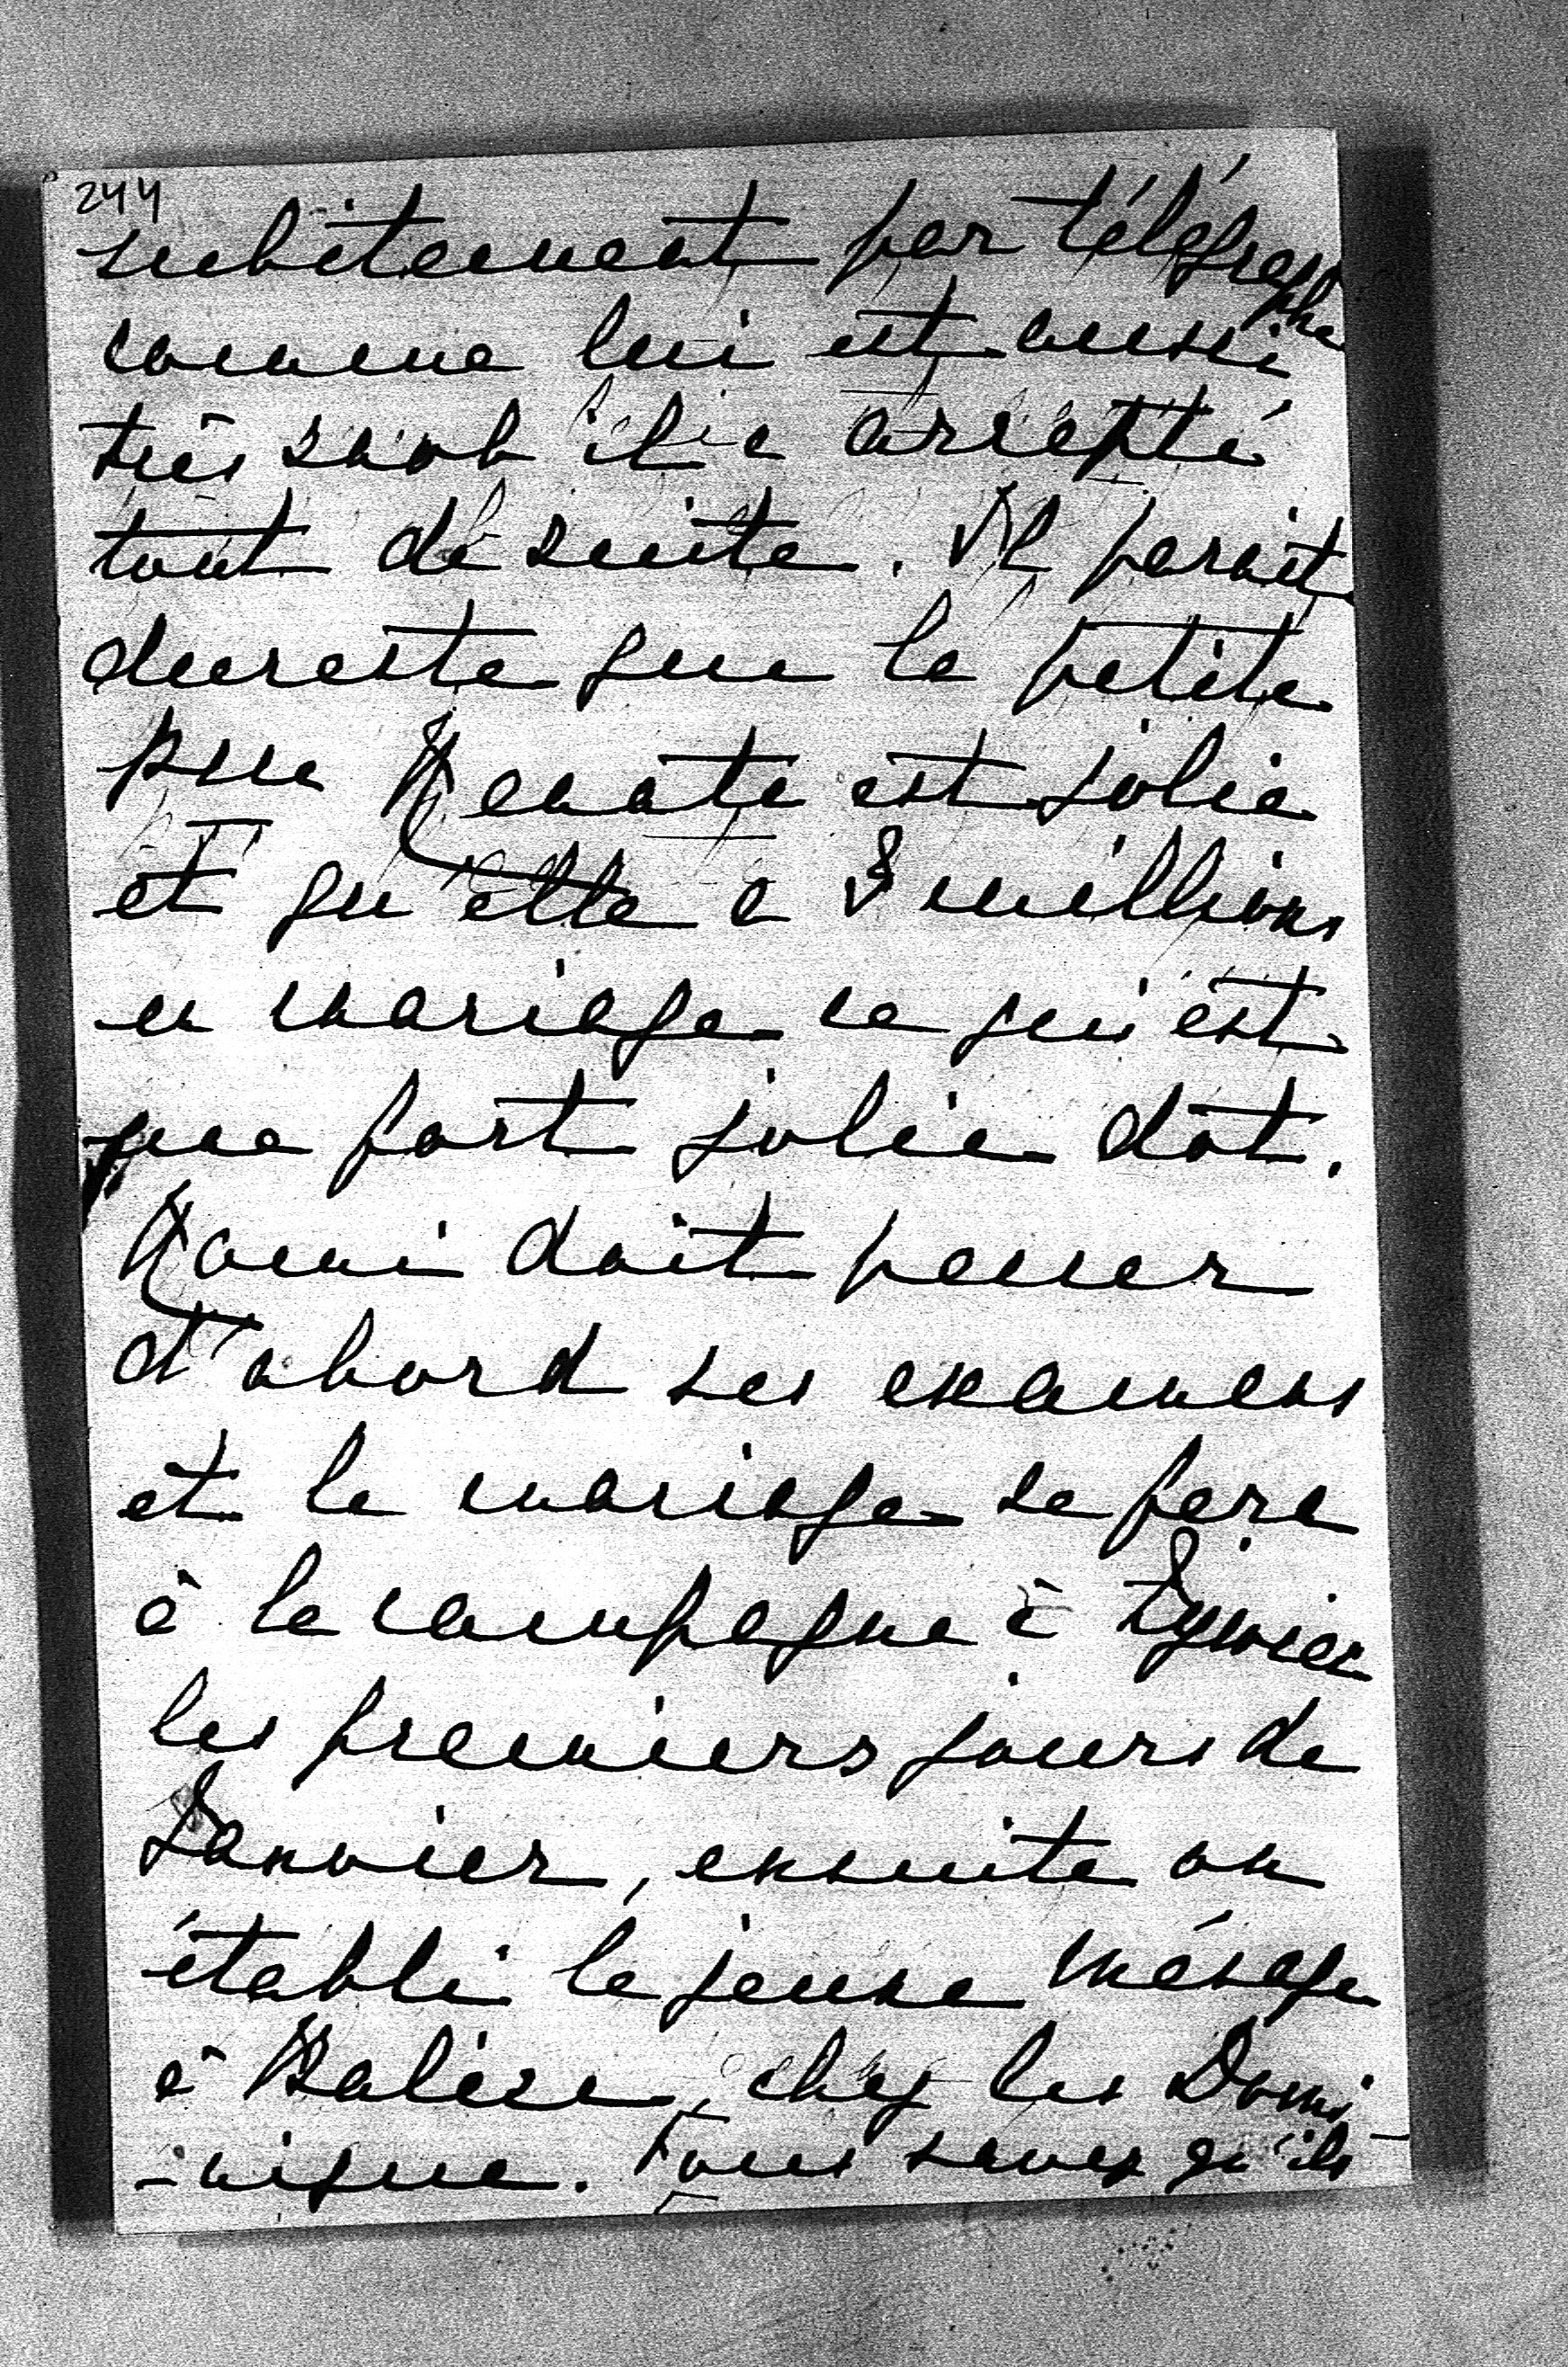 244
subitement par télégraphe
comme lui est aussi
très snob il a accepté
tout de suite. Il parait
dureste que la petite
Renate est jolie
et qu'elle a 8 millions
en mariage ce qui est
une fort jolie dot.
Romi doit passer
d'abord ses examens
et le mariage se fera
à la campagne à Zywiec
les premiers jours de
Janvier, ensuite on
établi le jeune ménage
à Balice, chez les Domi
-nique. Vous savez qu'ils